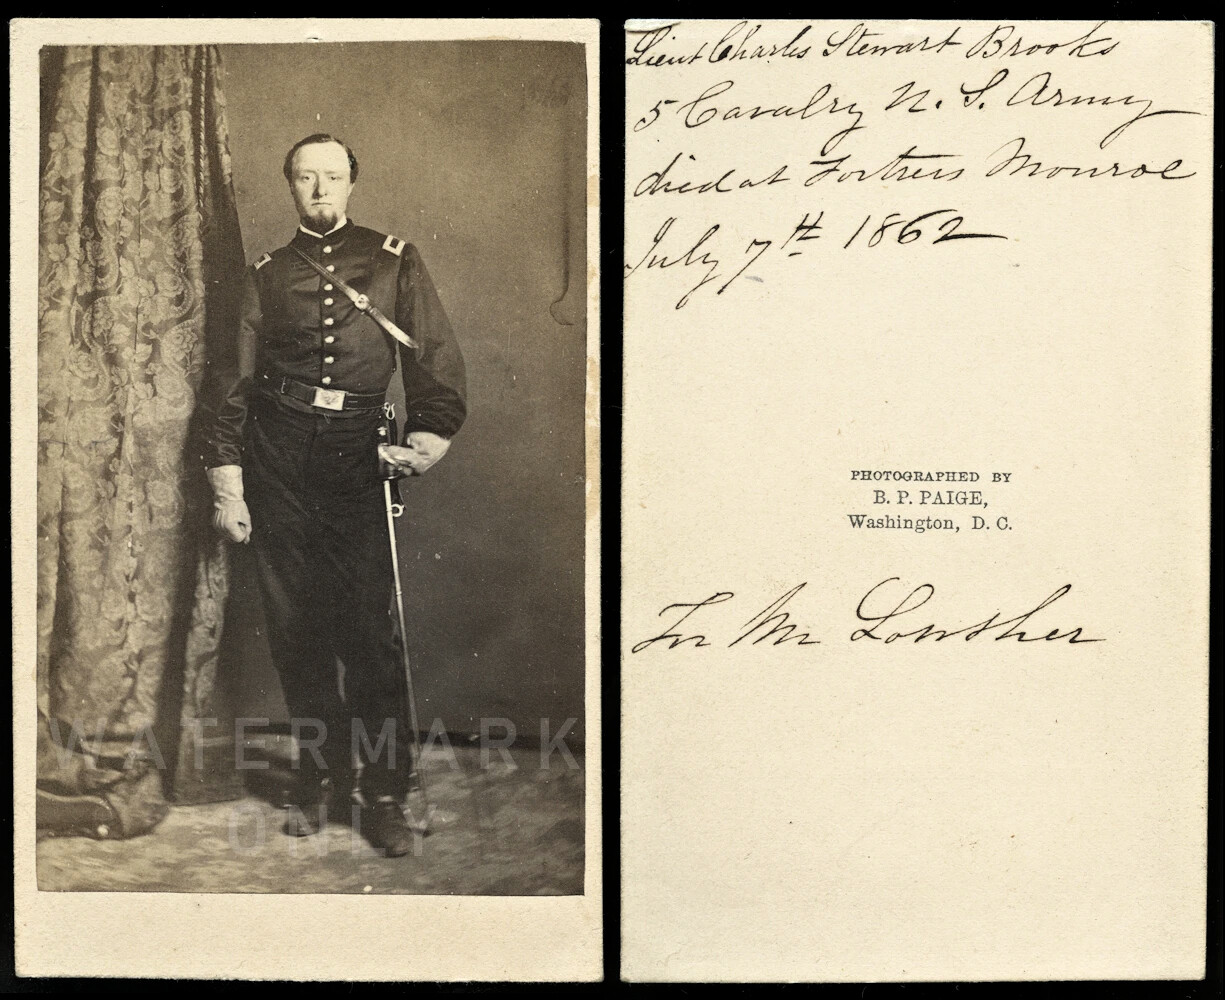 WATERMARK
ONLY
Lieut Charles Stewart Brooks
5 Cavalry U. S. Army
died at Fortress Monroe
July 7th 1862
PHOTOGRAPHED BY
B. P. PAIGE,
Washington, D. C.
For Mr Lowther